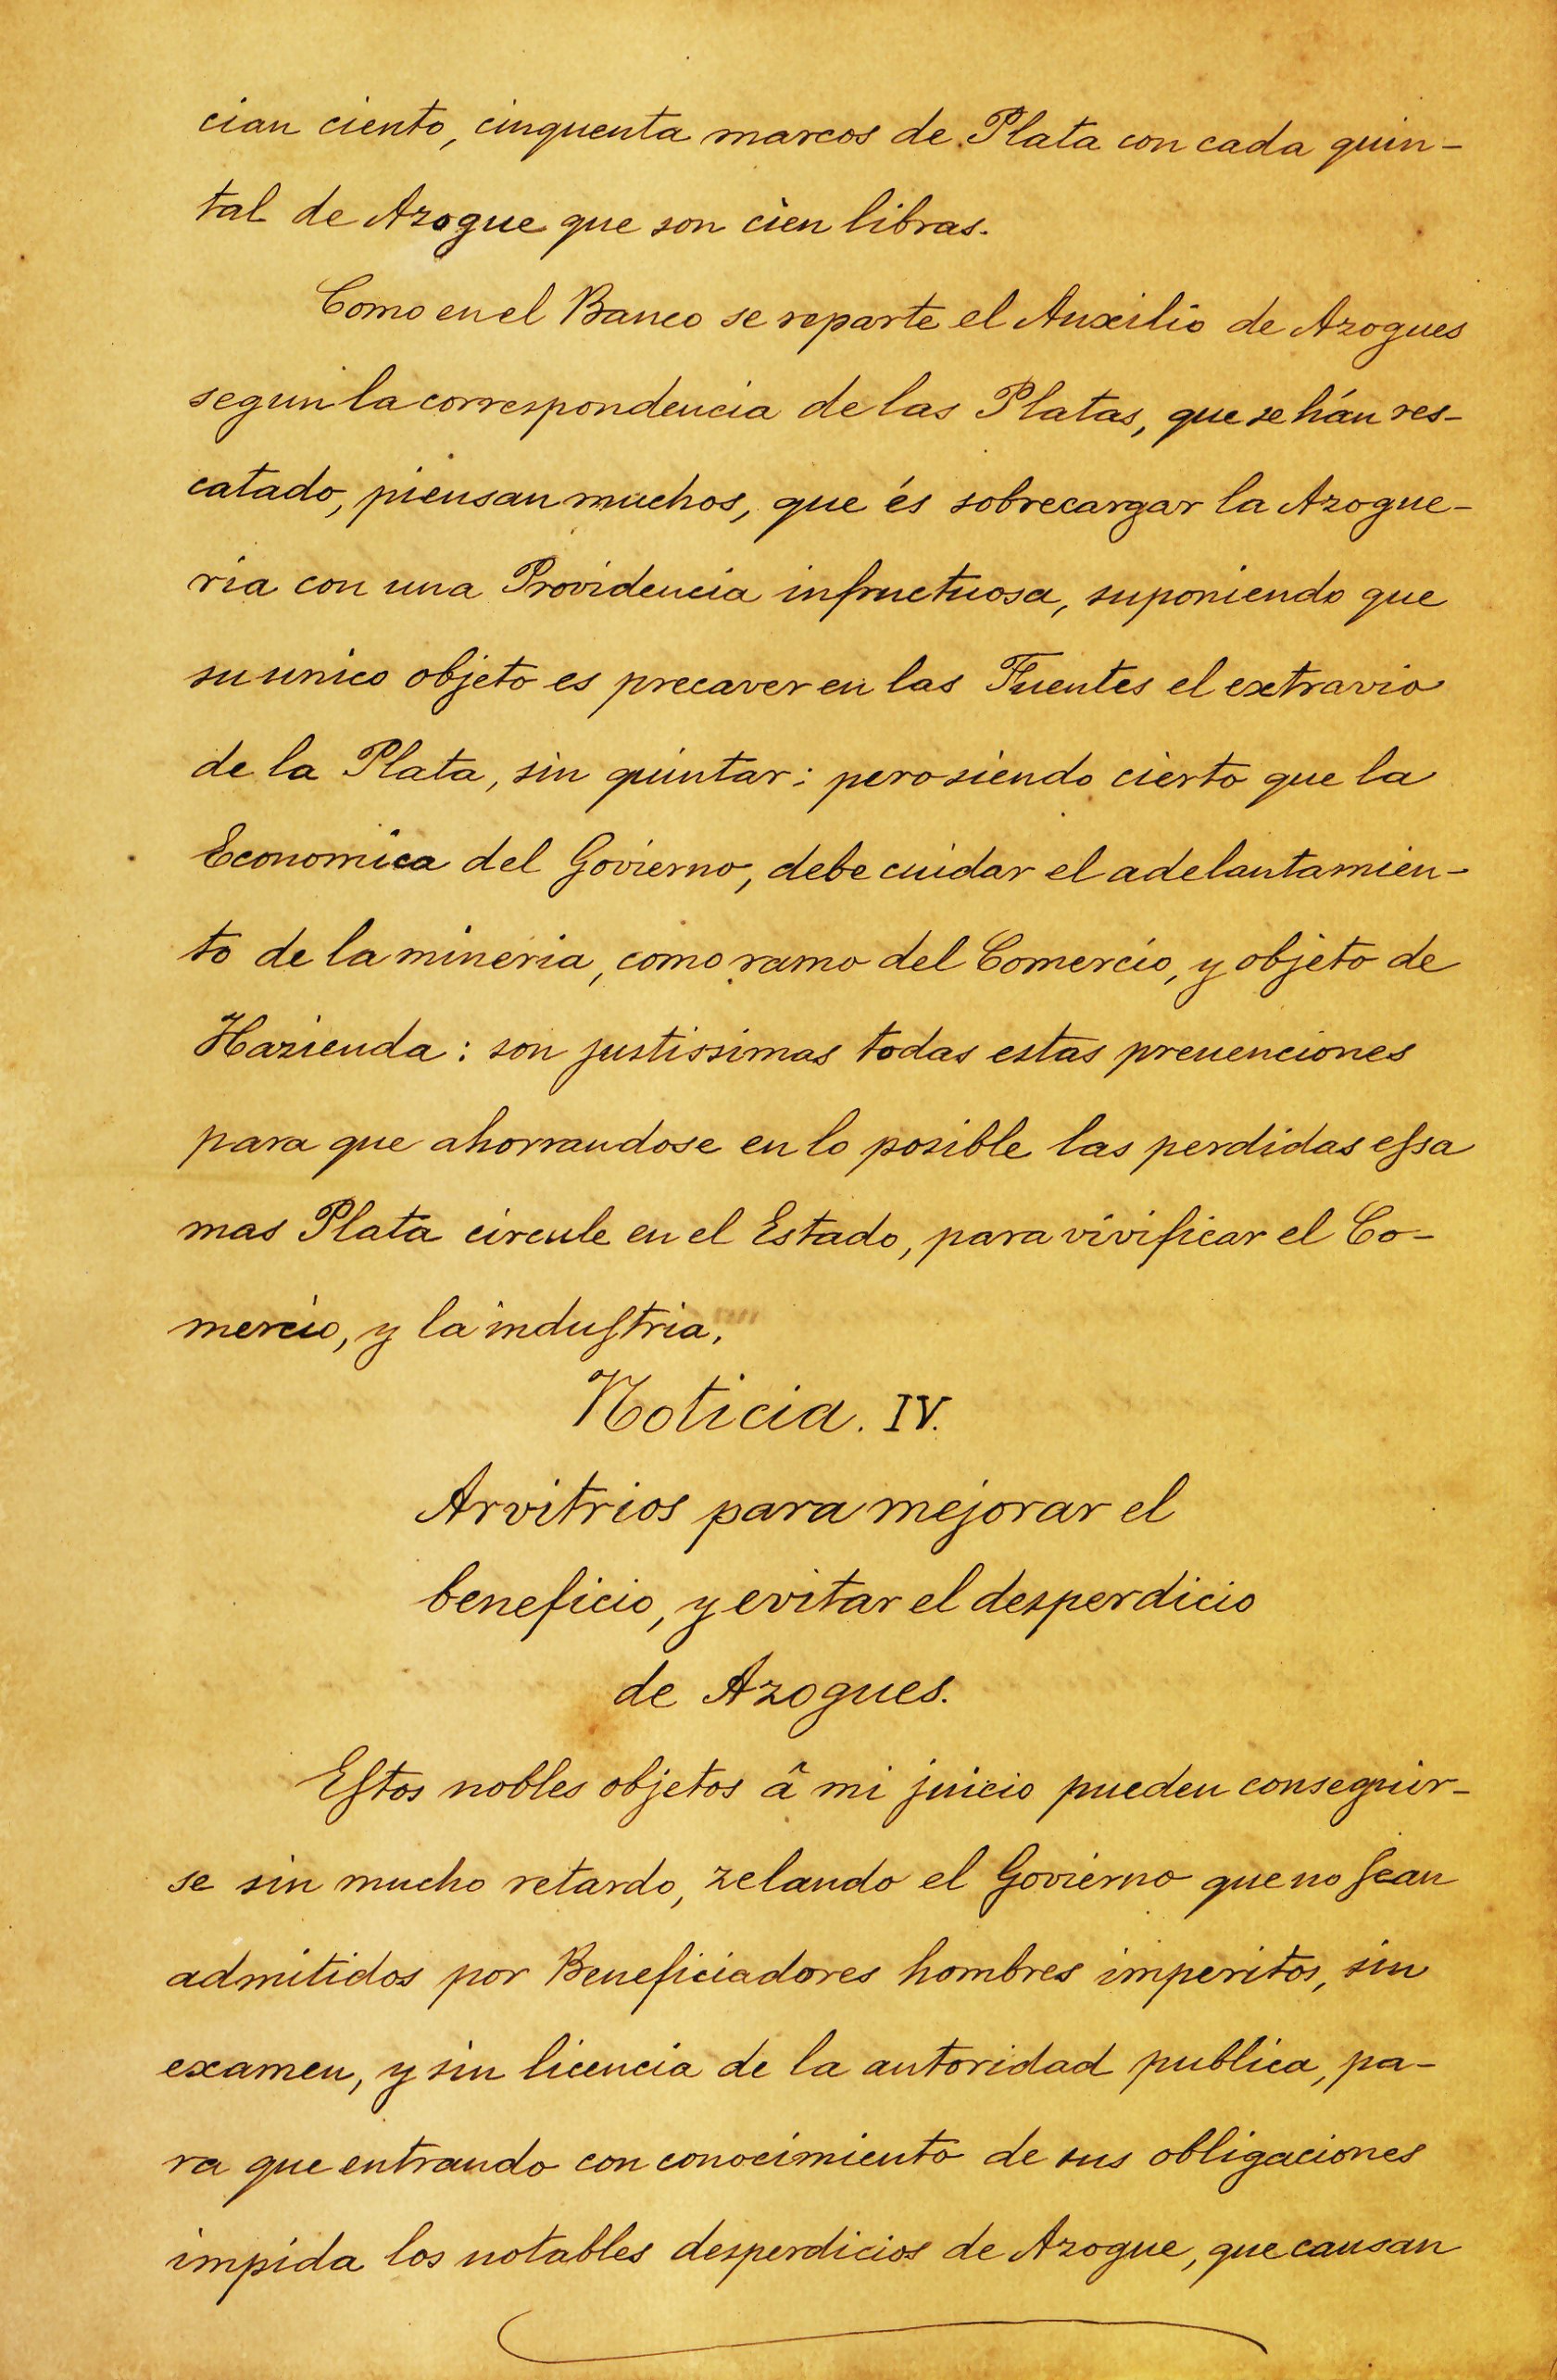 cian ciento, cinquenta marcos de Plata con cada quin-
tal de Azogue que son cien libras.
Como en el Banco se reparte el Auxilio de Azogues
segun la correspondencia de las Platas, que se hán res-
catado, piensan muchos, que és sobrecargar la Azogue-
ria con una Providencia infructuosa, suponiendo que
su unico objeto es precaver en las Fuentes el extravio
de la Plata, sin quintar: pero siendo cierto que la
Economica del Govierno, debe cuidar el adelantamien-
to de la mineria, como ramo del Comercio, y objeto de
Hazienda: son justissimas todas estas prevenciones
para que ahorrandose en lo posible las perdidas eſsa
mas Plata circule en el Estado, para vivificar el Co-
mercio, y la induſtria.
Noticia. IV.
Arvitrios para mejorar el
beneficio, y evitar el desperdicio
de Azogues.
Eſtos nobles objetos â mi juicio pueden conseguir-
se sin mucho retardo, zelando el Govierno que no ſean
admitidos por Beneficiadores hombres imperitos, sin
examen, y sin licencia de la autoridad publica, pa-
ra que entrando con conocimiento de sus obligaciones
impida los notables desperdicios de Azogue, que causan